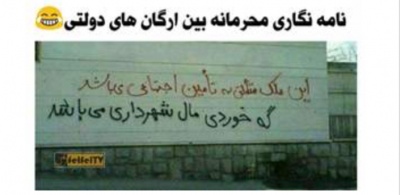 نامه نگاری محرمانه بین ارگان های دولتی😂
این ملک متعلق به تأمین اجتماعی می باشد
گه خوردی مال شهرداری می باشد
felfelTV